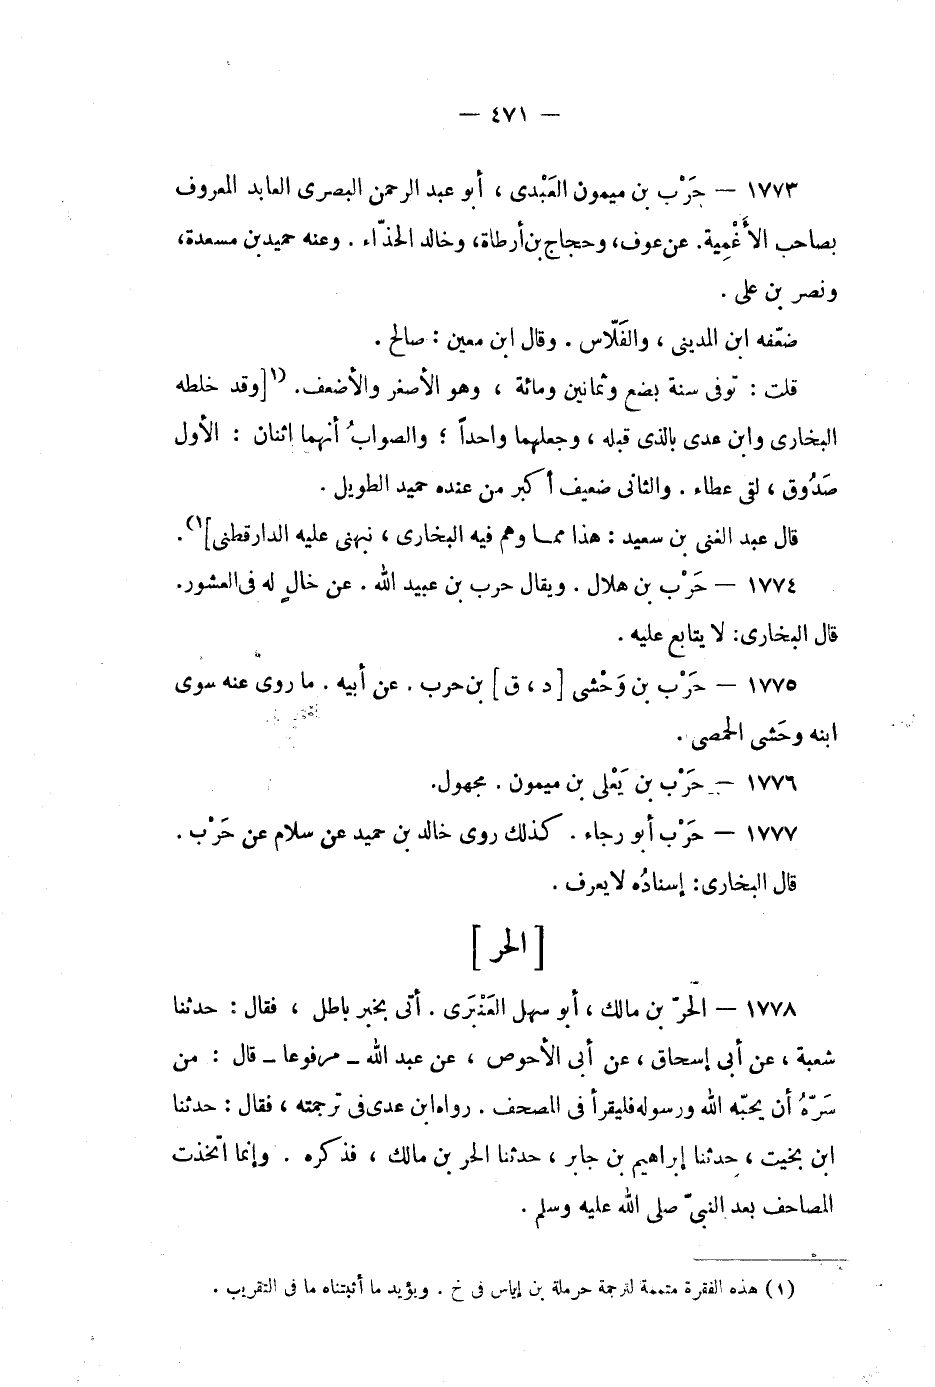 — ٤٧١ —
١٧٧٣ — حَرْب بن ميمون العَبْدى ، أبو عبد الرحمن البصرى العابد المعروف
بصاحب الأَغْمِية. عن عوف، وحجاج بن أرطاة، وخالد الحذّاء . وعنه حميد بن مسعدة،
ونصر بن على .
ضعّفه ابن المدينى ، والفَلّاس . وقال ابن معين : صالح .
قلت : تُوفى سنة بضع وثمانين ومائة ، وهو الأصغر والأضعف. (١[وقد خلطه
البخارى وابن عدى بالذى قبله ، وجعلهما واحداً ؛ والصوابُ أنهما اثنان : الأول
صَدُوق ، لقى عطاء . والثانى ضعيف أكبر من عنده حميد الطويل .
قال عبد الغنى بن سعيد : هذا مما وهم فيه البخارى ، نبهنى عليه الدارقطنى]١).
١٧٧٤ — حَرْب بن هلال . ويقال حرب بن عبيد الله . عن خالٍ له فى العشور.
قال البخارى: لا يتابع عليه .
١٧٧٥ — حَرْب بن وَحْشى [ د ، ق ] بن حرب . عن أبيه . ما روى عنه سوى
ابنه وحَشى الحمصى .
١٧٧٦ — حَرْب بن يَعْلى بن ميمون . مجهول.
١٧٧٧ — حَرْب أبو رجاء . كذلك روى خالد بن حميد عن سلام عن حَرْب .
قال البخارى: إسنادُه لا يعرف .
[ الحر ]
١٧٧٨ — الحُرّ بن مالك ، أبو سهل العَنْبَرى . أتى بخبر باطل ، فقال : حدثنا
شعبة ، عن أبى إسحاق ، عن أبى الأحوص ، عن عبد الله ــ مرفوعا ــ قال : من
سَرّهُ أن يحبّه الله ورسوله فليقرأ فى المصحف . رواه ابن عدى فى ترجمته ، فقال : حدثنا
ابن بخيت ، حدثنا إبراهيم بن جابر ، حدثنا الحر بن مالك ، فذكره . وإنما اتّخذت
المصاحف بعد النبىّ صلى الله عليه وسلم .
(١) هذه الفقرة متممة لترجمة حرملة بن إياس فى خ . ويؤيد ما أثبتناه ما فى التقريب .